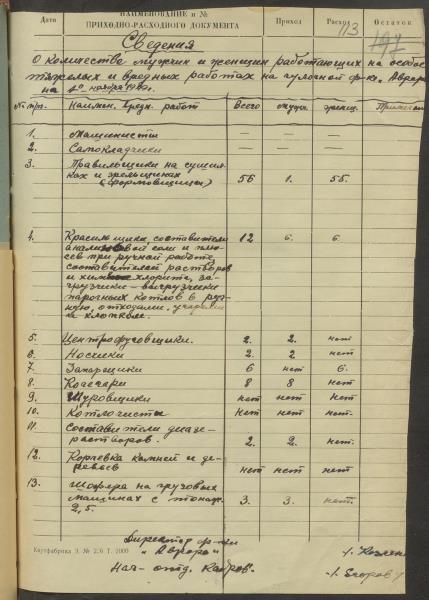 Дата НАИМЕНОВАНИЕ и № ПРИХОДНО-РАСХОДНОГО ДОКУМЕНТА Приход Расход Остаток
113
197
Сведения
О количестве мужчин и женщин работающих на особо
тяжелых и вредных работах на чулочной ф-ке „Аврора
на 1го ноября
№ п/п. Наимен. вредн. работ Всего мужч. женщ. Примечан
1. Машинисты — — —
2. Самокладчики — — —
3. Правильщики на сушил-
ках и зрельщиках
(формовщицы) 56 1. 55.
4. Красильщики, составители
анализовой соли и плю-
сев. при ручной работе
составителей растворов
и хлорита, за-
грузчики – выгрузчики
паровых котлов в руч-
ную, отходами,
хлопком. 12 6. 6.
5. Центрофуговщики. 2. 2. нет
6. Носчики 2. 2 нет
7. 6 нет 6.
8. 8 8 нет
9. Шуровщики нет нет нет
10. Котлочисты нет нет нет.
11. Составители диазо-
растворов. 2. 2. нет.
12. Корчевка камней и де-
ревьев нет нет нет
13. Шофера на грузовых
машинах с тонаж.
2,5. 3. 3. нет.
Директор ф-ки
„Аврора"
Нач. отд. Кадров.
/. Козлен
/. Егоров
Картфабрика З. № 226 Т. 2000